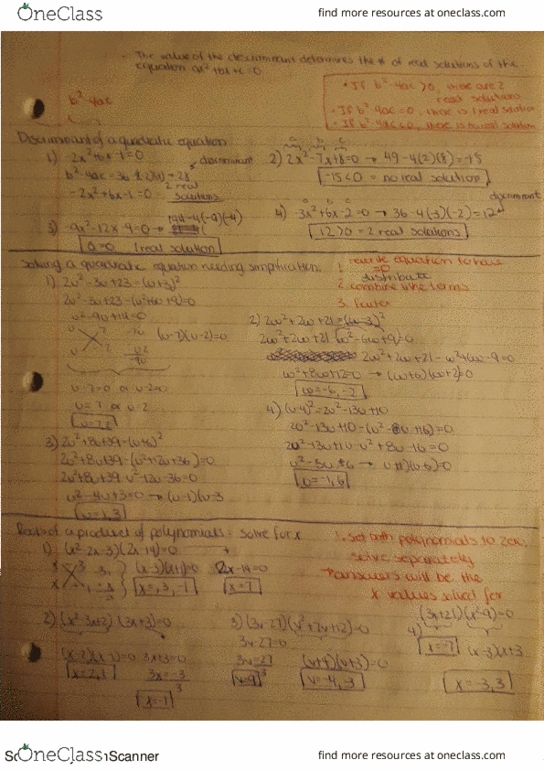 OneClass
find more resources at oneclass.com
The value of the discriminant determines the # of real solutions of the
equation ax²+bx+c=0
b²-4ac
• If b²-4ac >0, there are 2
real solutions
• If b²-4ac =0, there is 1 real solution
• If b²-4ac <0, there is no real solution
Discriminant of a quadratic equation
1) 2x²+6x-1=0
discriminant
-2x²+6x-1=0
2 real
solutions
2) 2x²-7x+8=0 → 49-4(2)(8)=-15
-15<0 = no real solution
3) -9x²-12x-4=0 →
144-4(-9)(-4)
0=0 1 real solution
4) -3x²+6x-2=0 → 36-4(3)(-2)=12
discriminant
12>0 = 2 real solutions
Solving a quadratic equation needing simplification
1. rewrite equation to have
=0
distribute
2. combine like terms
3. factor
1) 2u²-3u+23=(u+3)²
2u²-3u+23-(u²+6u+9)=0
u²-9u+14=0
(u-7)(u-2)=0
u-7=0 or u-2=0
u=7 or u=2
u=7,2
2) 2w²+2w+21=(w-3)²
2w²+2w+21-(w²-6w+9)=0
2w²+2w+21-w²+6w-9=0
w²+8w+12=0 → (w+6)(w+2)=0
w=-6,-2
3) 2u²+8u+39=(u+6)²
2u²+8u+39-(u²+12u+36)=0
2u²+8u+39-u²-12u-36=0
u²-4u+3=0 → (u-1)(u-3
u=1,3
4) (u-4)²=2u²-13u+10
2u²-13u+10-(u²-8u+16)=0
2u²-13u+10-u²+8u-16=0
u²-5u-6 → (u+1)(u-6)=0
u=-1,6
Roots of a product of polynomials: solve for x
1. set both polynomials to zero,
solve separately
answers will be the
x values solved for
1) (x²-2x-3)(2x-14)=0
(x-3)(x+1)=0
2x-14=0
x=3,-1
x=7
2) (x²-3x+2)(3x+3)=0
(x-2)(x-1)=0 3x+3=0
x=2,1
3x=-3
3
x=-1
3) (3v-27)(v²+7v+12)=0
3v-27=0
3v=27
3
v=9
(v+4)(v+3)=0
v=-4,-3
4) (3x+21)(x²-9)=0
x=-7
(x-3)(x+3
x=-3,3
OneClass
Scanner
find more resources at oneclass.com